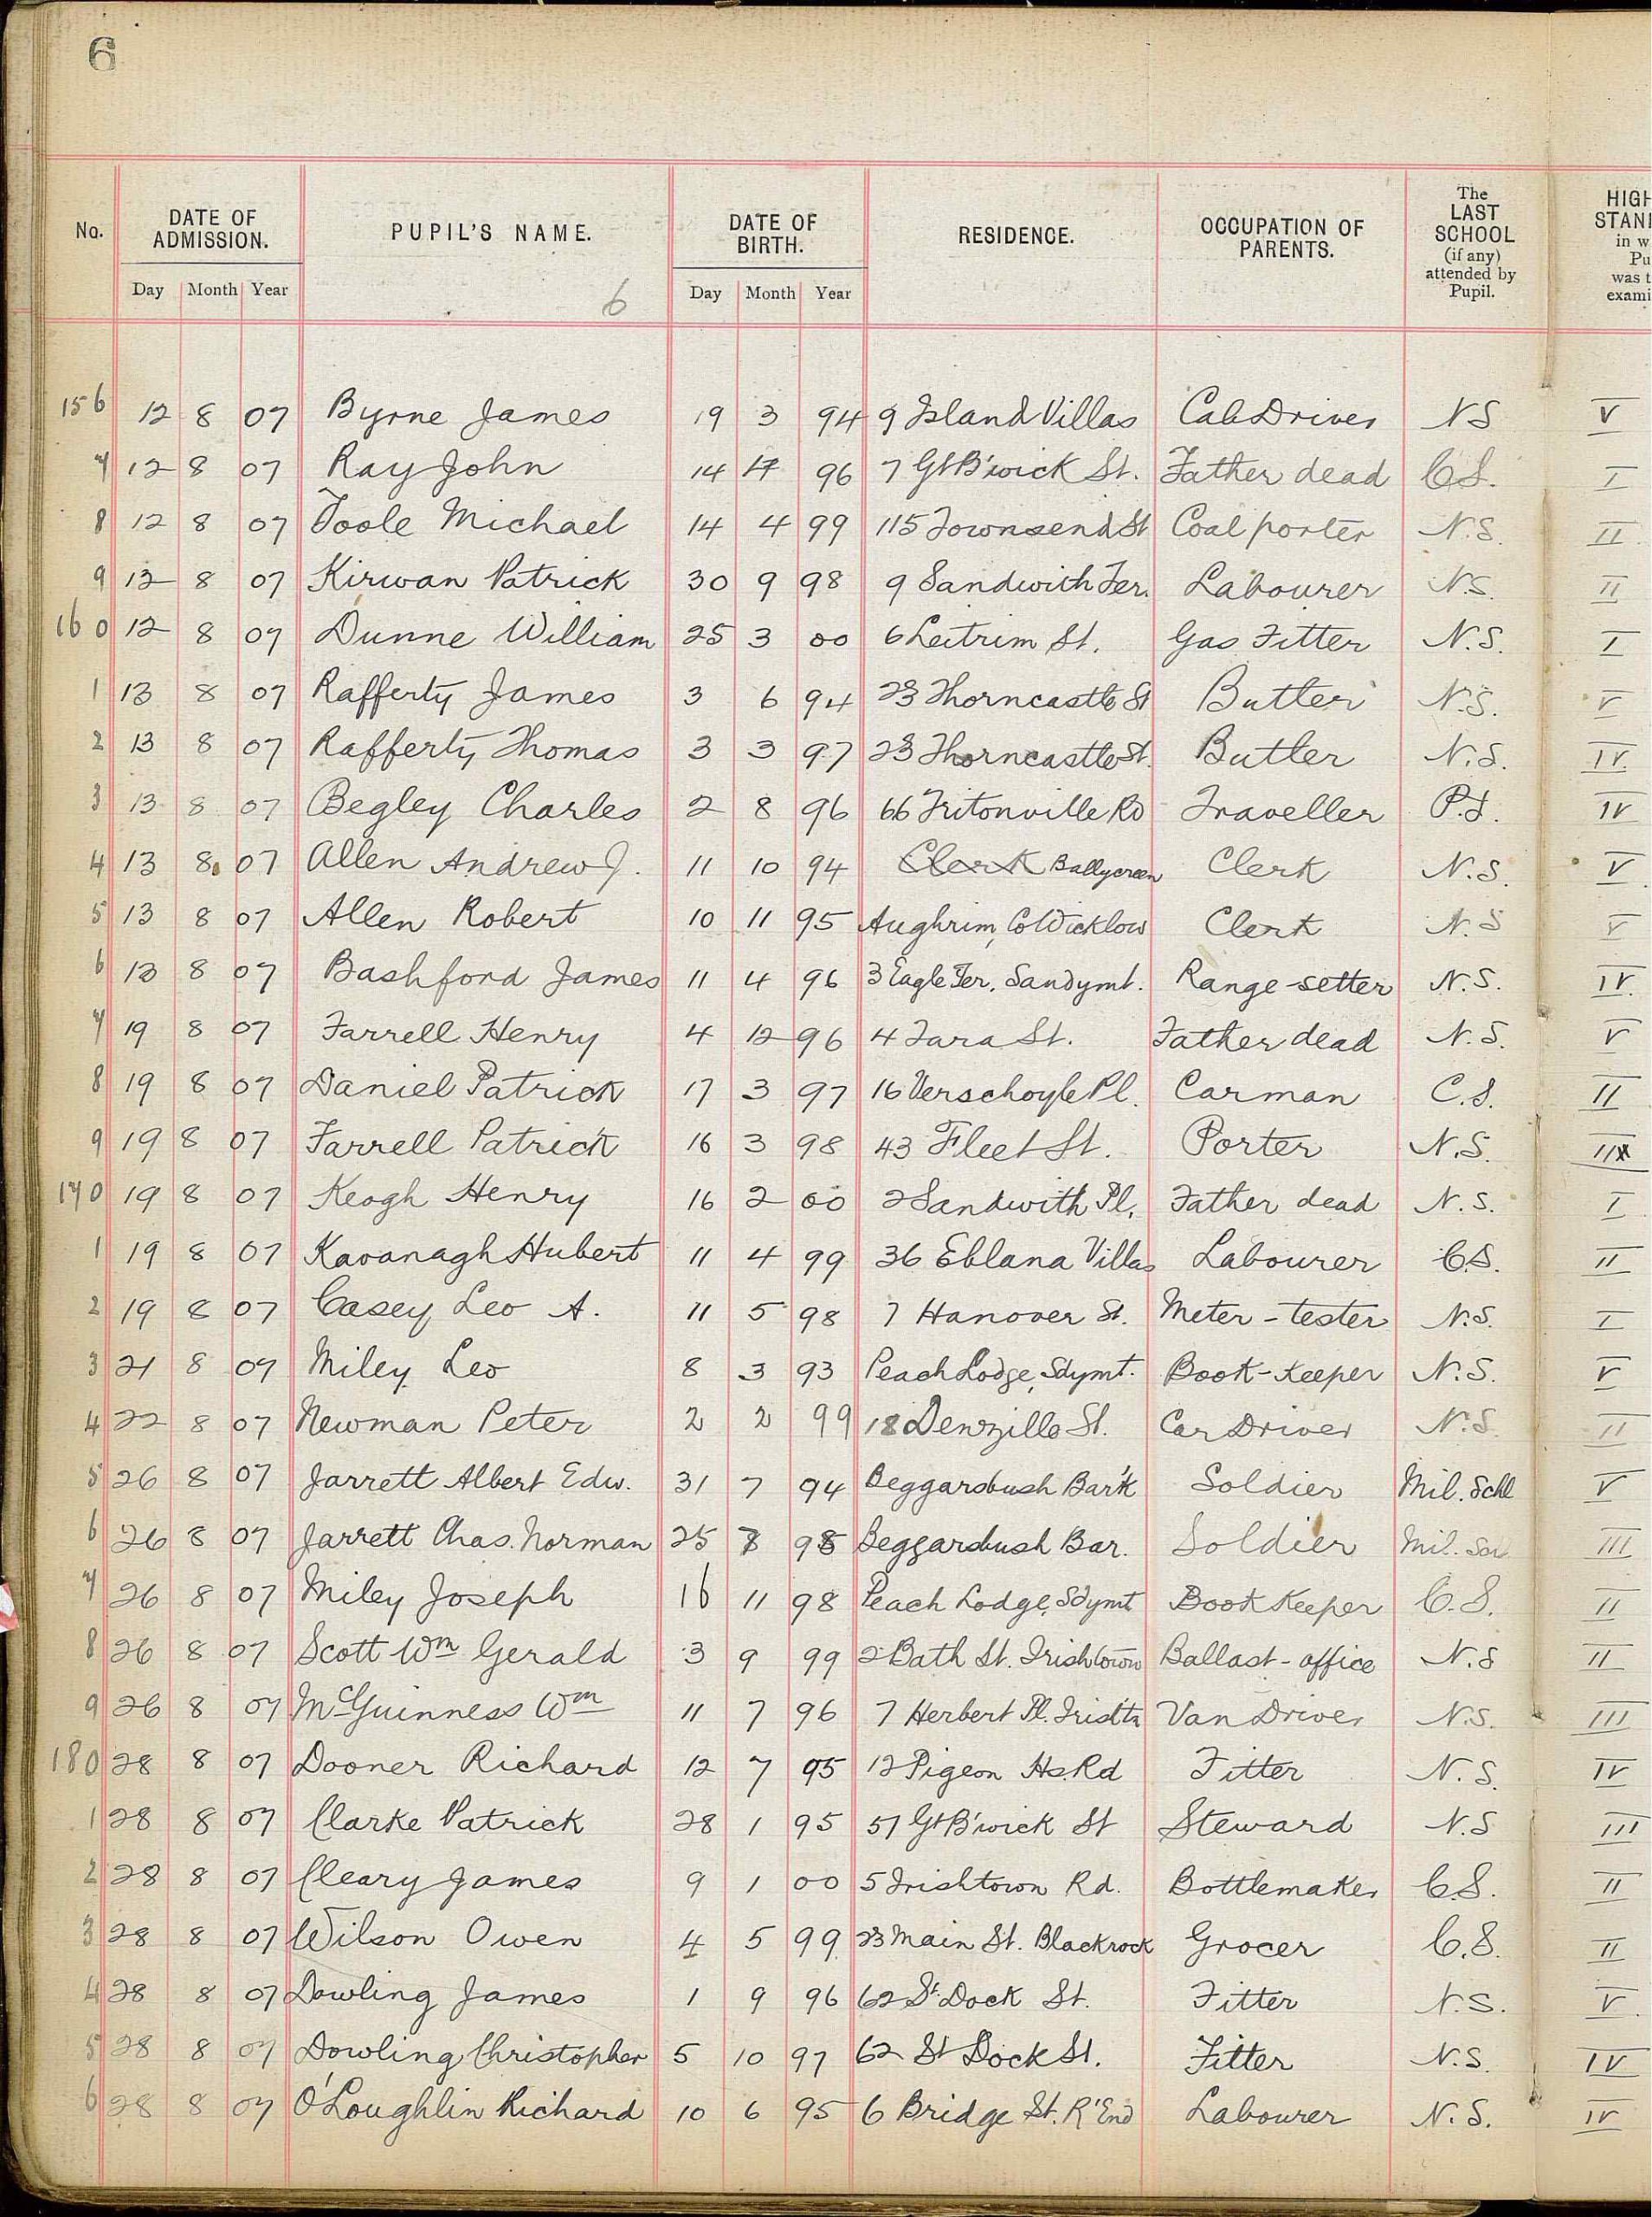 6
No. DATE OF ADMISSION. PUPIL'S NAME. DATE OF BIRTH. RESIDENCE. OCCUPATION OF PARENTS. The LAST SCHOOL (if any) attended by Pupil. HIGH STAN in w Pu was t exami
Day Month Year 6 Day Month Year
156 12 8 07 Byrne James 19 3 94 9 Island Villas Cab Driver NS V
7 12 8 07 Ray John 14 96 7 Gt B'wick St. Father dead C.S. I
8 12 8 07 Toole Michael 14 4 99 115 Townsend St Coal porter N.S. II
9 12 8 07 Kirwan Patrick 30 9 98 9 Sandwith Ter. Labourer N.S. II
160 12 8 07 Dunne William 25 3 00 6 Leitrim St. Gas Fitter N.S. I
1 13 8 07 Rafferty James 3 6 94 23 Thorncastle St Butler N.S. V
2 13 8 07 Rafferty Thomas 3 3 97 23 Thorncastle St. Butler N.S. IV
3 13 8 07 Begley Charles 2 8 96 66 Tritonville Rd Traveller P.S. IV
4 13 8 07 Allen Andrew J. 11 10 94 Clerk Ballycreen Clerk N.S. V
5 13 8 07 Allen Robert 10 11 95 Aughrim, Co Wicklow Clerk N.S V
6 13 8 07 Bashford James 11 4 96 3 Eagle Ter. Sandymt. Range-setter N.S. IV
7 19 8 07 Farrell Henry 4 12 96 4 Tara St. Father dead N.S. V
8 19 8 07 Daniel Patrick 17 3 97 16 Verschoyle Pl. Carman C.S. II
9 19 8 07 Farrell Patrick 16 3 98 43 Fleet St. Porter N.S.
170 19 8 07 Keogh Henry 16 2 00 2 Sandwith Pl. Father dead N.S. I
1 19 8 07 Kavanagh Hubert 11 4 99 36 Eblana Villas Labourer C.S. II
2 19 8 07 Casey Leo A. 11 5 98 7 Hanover St. Meter-tester N.S. I
3 21 8 07 Miley Leo 8 3 93 Peach Lodge, Sdymt. Book-keeper N.S. V
4 22 8 07 Newman Peter 2 2 99 18 Denzille St. Car Driver N.S. II
5 26 8 07 Jarrett Albert Edw. 31 7 94 Beggarsbush Bar'k Soldier Mil. Schl V
6 26 8 07 Jarrett Chas. Norman 25 Beggarsbush Bar. Soldier Mil. III
7 26 8 07 Miley Joseph 16 11 98 Peach Lodge, Sdymt Book Keeper C.S. II
8 26 8 07 Scott Wm Gerald 3 9 99 2 Bath St. Irishtown Ballast-office N.S II
9 26 8 07 McGuinness Wm 11 7 96 7 Herbert Pl. Irisht'n Van Driver N.S. III
180 28 8 07 Dooner Richard 12 7 95 12 Pigeon Ho. Rd Fitter N.S. IV
1 28 8 07 Clarke Patrick 28 1 95 57 Gt B'wick St Steward N.S III
2 28 8 07 Cleary James 9 1 00 5 Irishtown Rd. Bottlemaker C.S. II
3 28 8 07 Wilson Owen 4 5 99 23 Main St. Blackrock Grocer C.S. II
4 28 8 07 Dowling James 1 9 96 62 Sth Dock St. Fitter N.S. V
5 28 8 07 Dowling Christopher 5 10 97 62 Sth Dock St. Fitter N.S. IV
6 28 8 07 O'Loughlin Richard 10 6 95 6 Bridge St. R'End Labourer N.S. IV